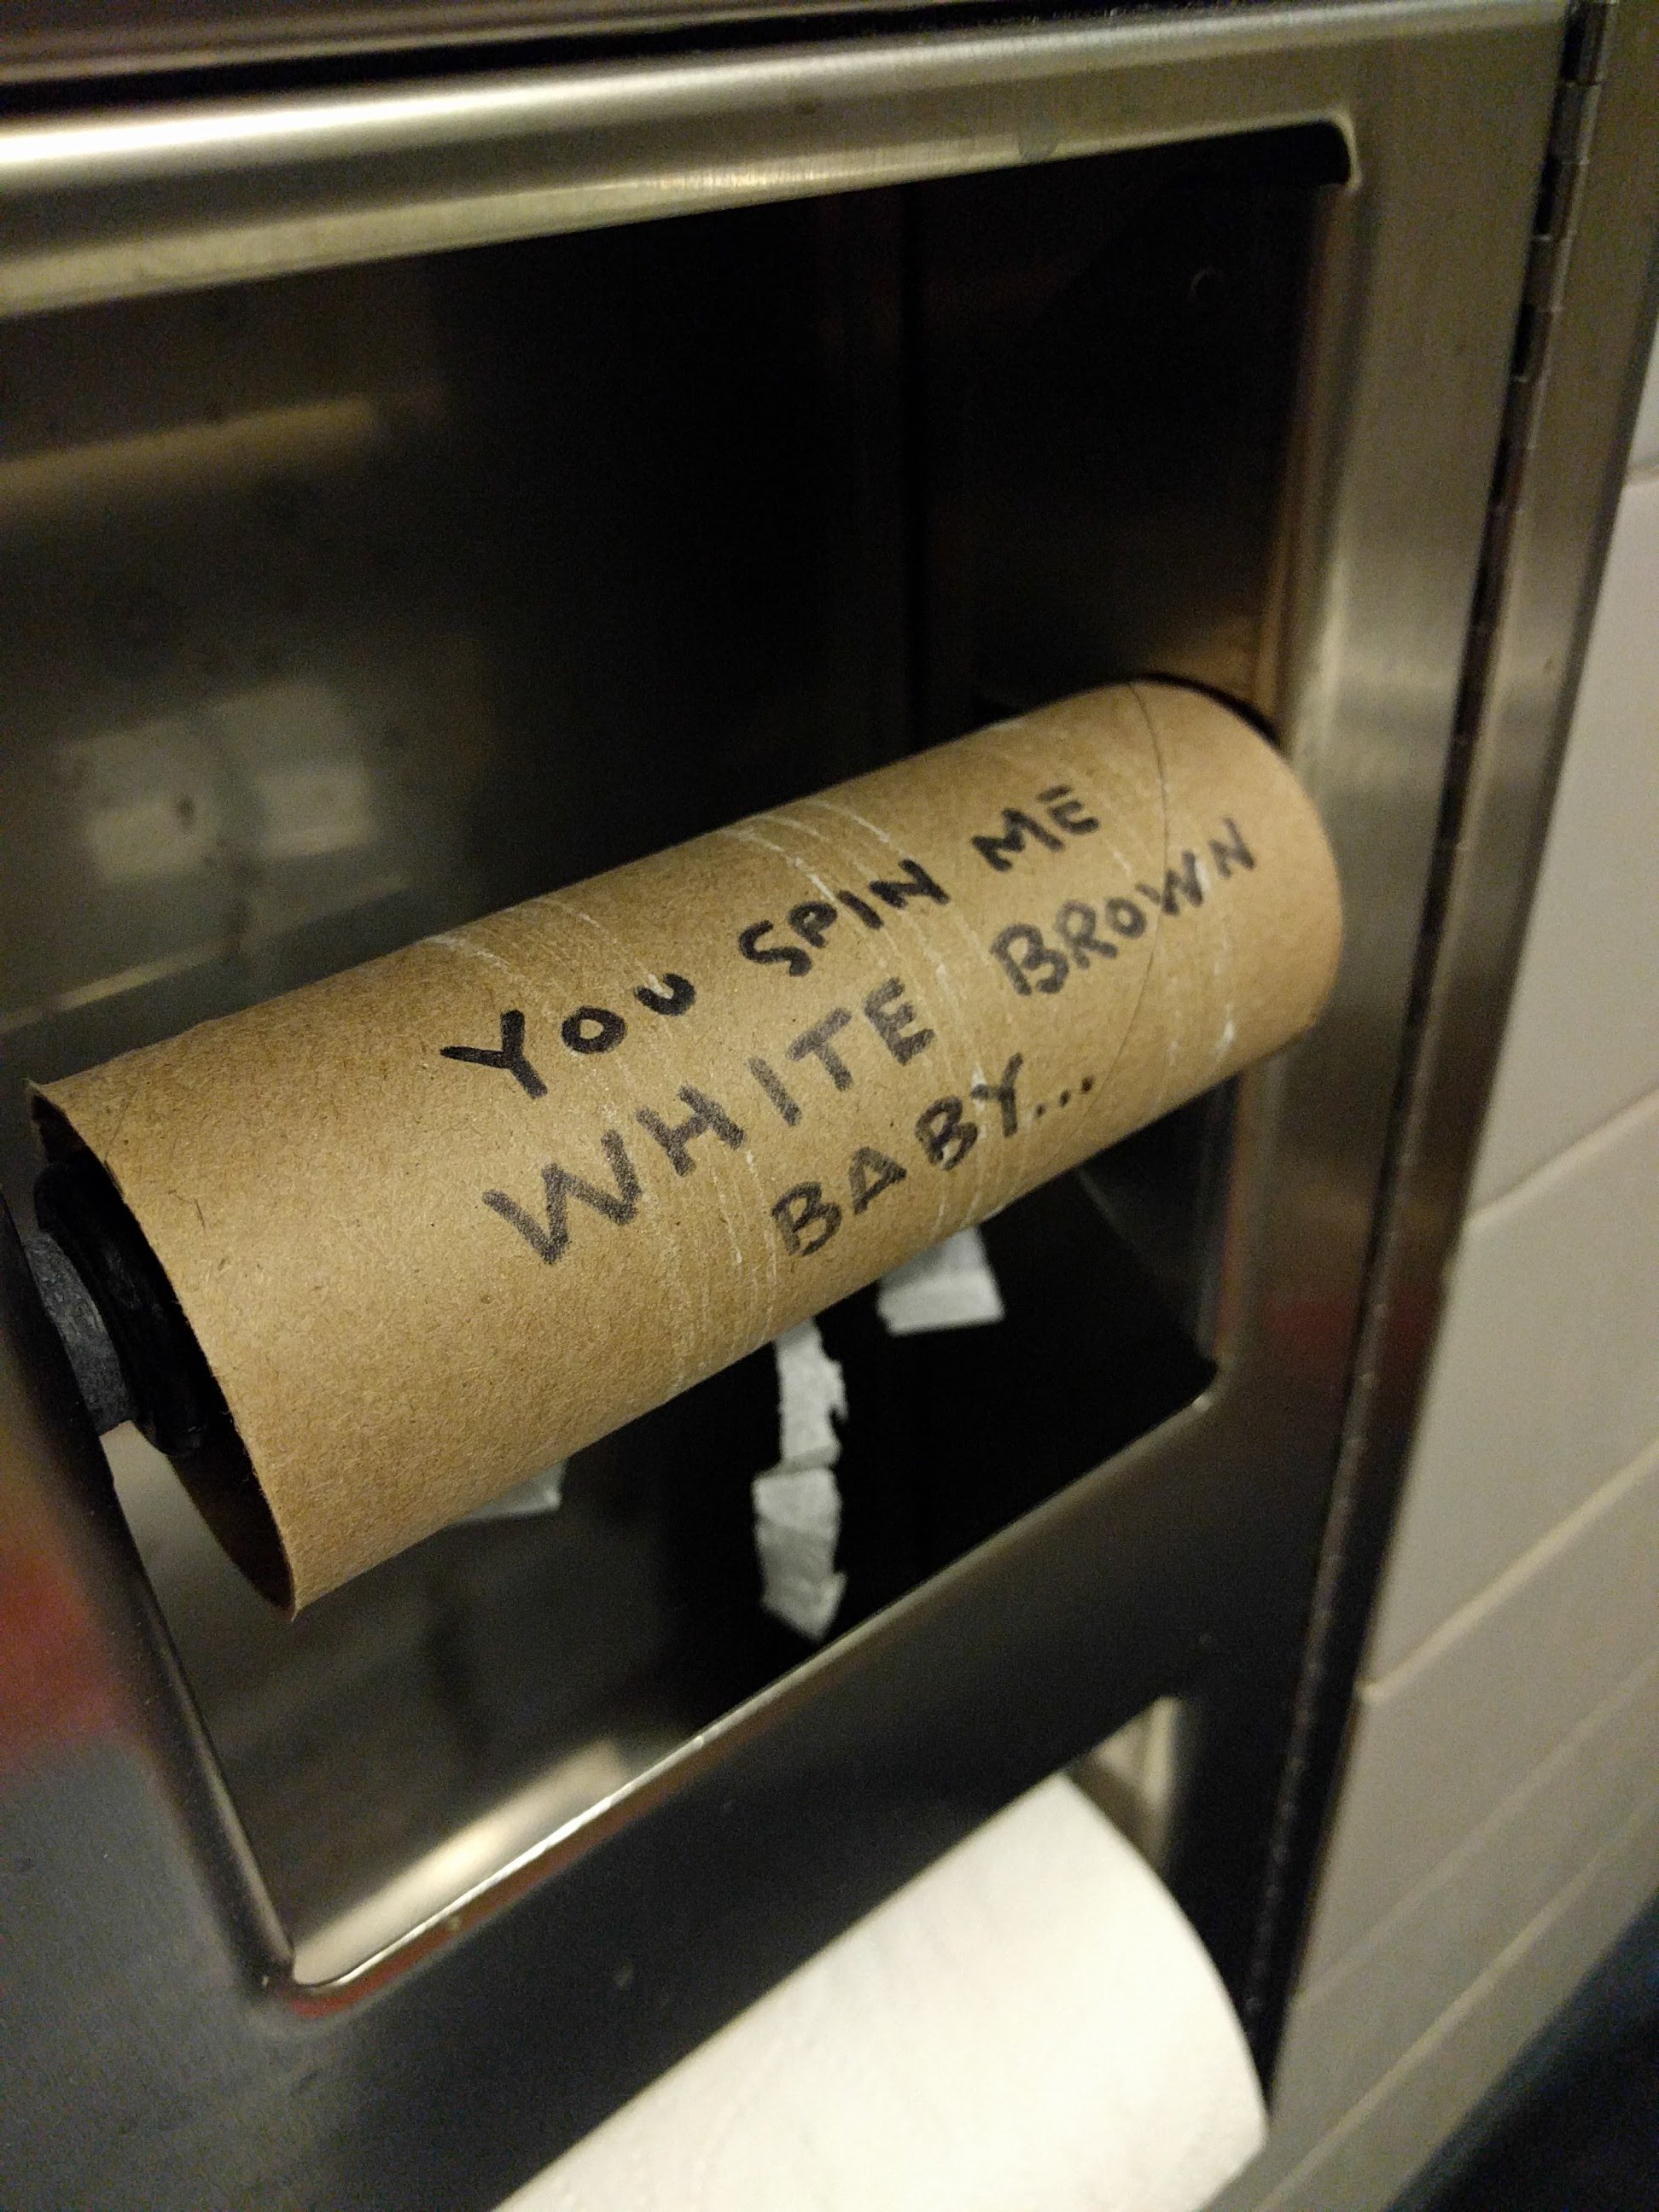 YOU SPIN ME
WHITE BROWN
BABY...